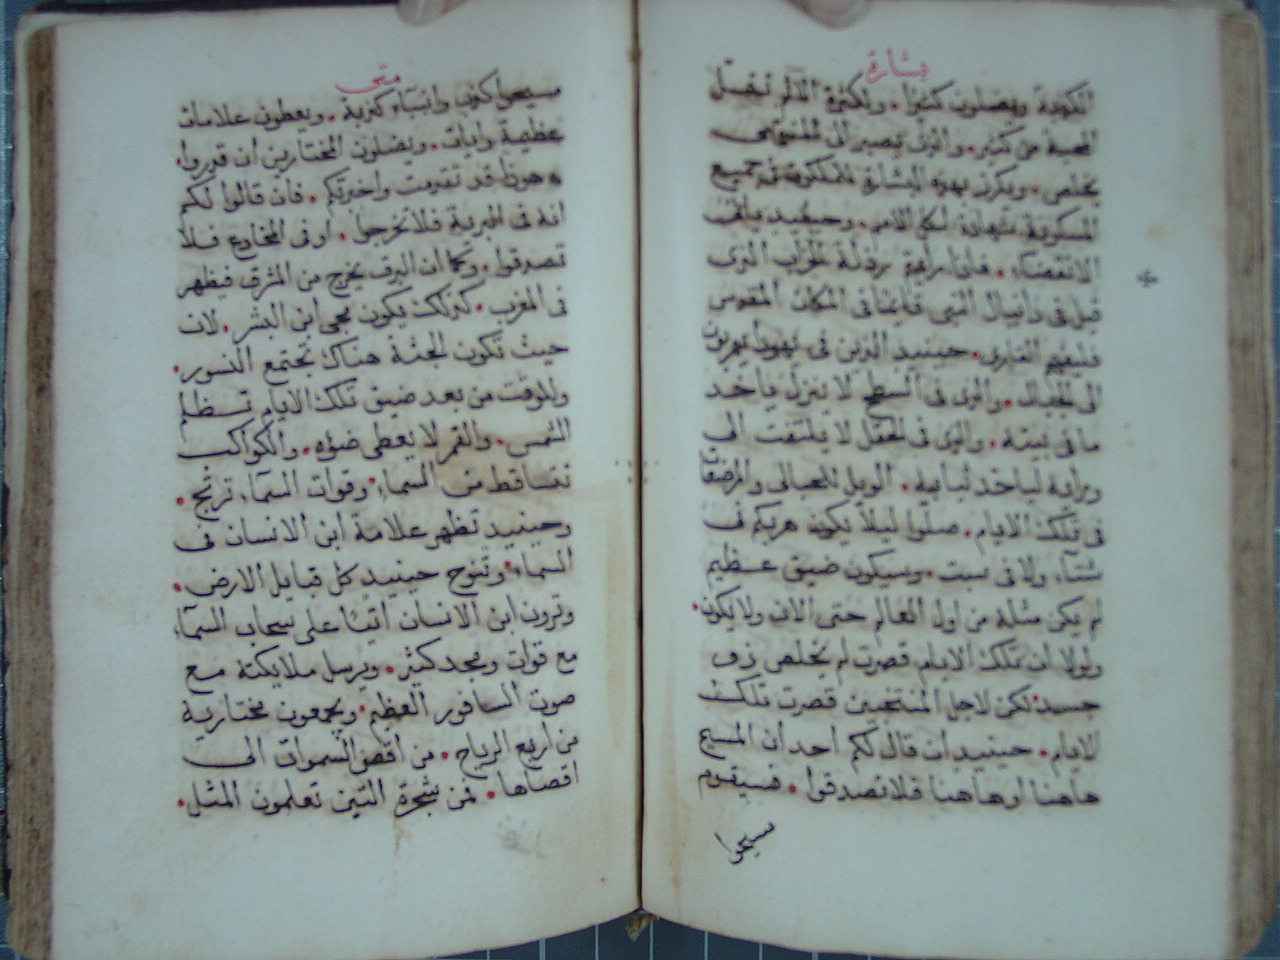 بشارة
الكدبة ويضلون كثيرا. ولكثرة الاثم تقل
المحبة من كثير. والذى يصبر الى المنتهى
يخلص. ويكرز بهذه البشارة الملكوت فى جميع
المسكونة شهادة لكل الامم. وحينيد ياتى
الانقضاء. فاذا رايتم رذلة الخراب الذى
قيل فى دانيال النبى قايما فى المكان المقدس
فليفهم القارى. حينيد الذين فى يهودا يهربون
الى الجبال. والذى فى السطح لا ينزل ياخد
ما فى بيته. والذى فى الحقل لا يلتفت الى
ورايه لياخد ثيابه. الويل للحبالى والمرضعات
فى تلك الايام. صلوا ليلا يكون هربكم فى
شتاء، ولا فى سبت. وسيكون ضيق عظيم
لم يكن مثله من اول العالم حتى الان ولا يكون.
ولولا ان تلك الايام قصرت لم يخلص ذى
جسد. لكن لاجل المنتخبين قصرت تلك
الايام. حينيد ان قال لكم احد ان المسيح
هاهنا او هاهنا فلا تصدقوا. فسيقوم
مسيحوا
متى
مسيحوا كذب وانبياء كذبة. ويعطون علامات
عظيمة وايات. ويضلون المختارين ان قدروا.
هوذا قد تقدمت واخبرتكم. فان قالوا لكم
انه فى البرية فلا تخرجوا. او فى المخادع فلا
تصدقوا. وكما ان البرق يخرج من المشرق فيظهر
فى المغرب. كذلك يكون مجى ابن البشر. لان
حيث تكون الجثة هناك تجتمع النسور.
وللوقت من بعد ضيق تلك الايام تظلم
الشمس. والقمر لا يعطى ضوه. والكواكب
تتساقط من السماء. وقوات السماء ترتج.
وحينيد تظهر علامة ابن الانسان فى
السماء. وتنوح حينيد كل قبايل الارض.
وترون ابن الانسان اتيا على سحاب السماء
مع قوات ومجد كثير. ويرسل ملايكته مع
صوت السافور العظيم. ويجمعون مختاريه
من اربع الرياح. من اقصى السموات الى
اقصاها. فمن شجرة التين تعلمون المثل.